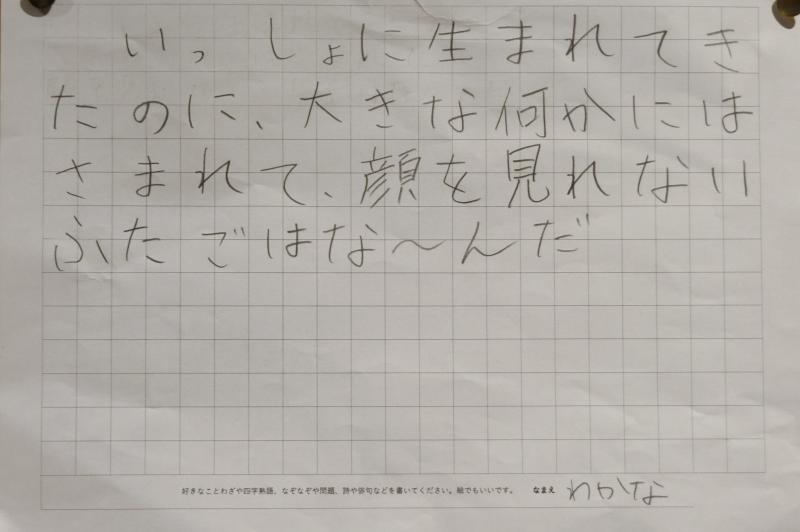 いっしょに生まれてき
たのに、大きな何かには
さまれて、顔を見れない
ふたごはな〜んだ
好きなことわざや四字熟語、なぞなぞや問題、詩や俳句などを書いてください。絵でもいいです。 なまえ わかな